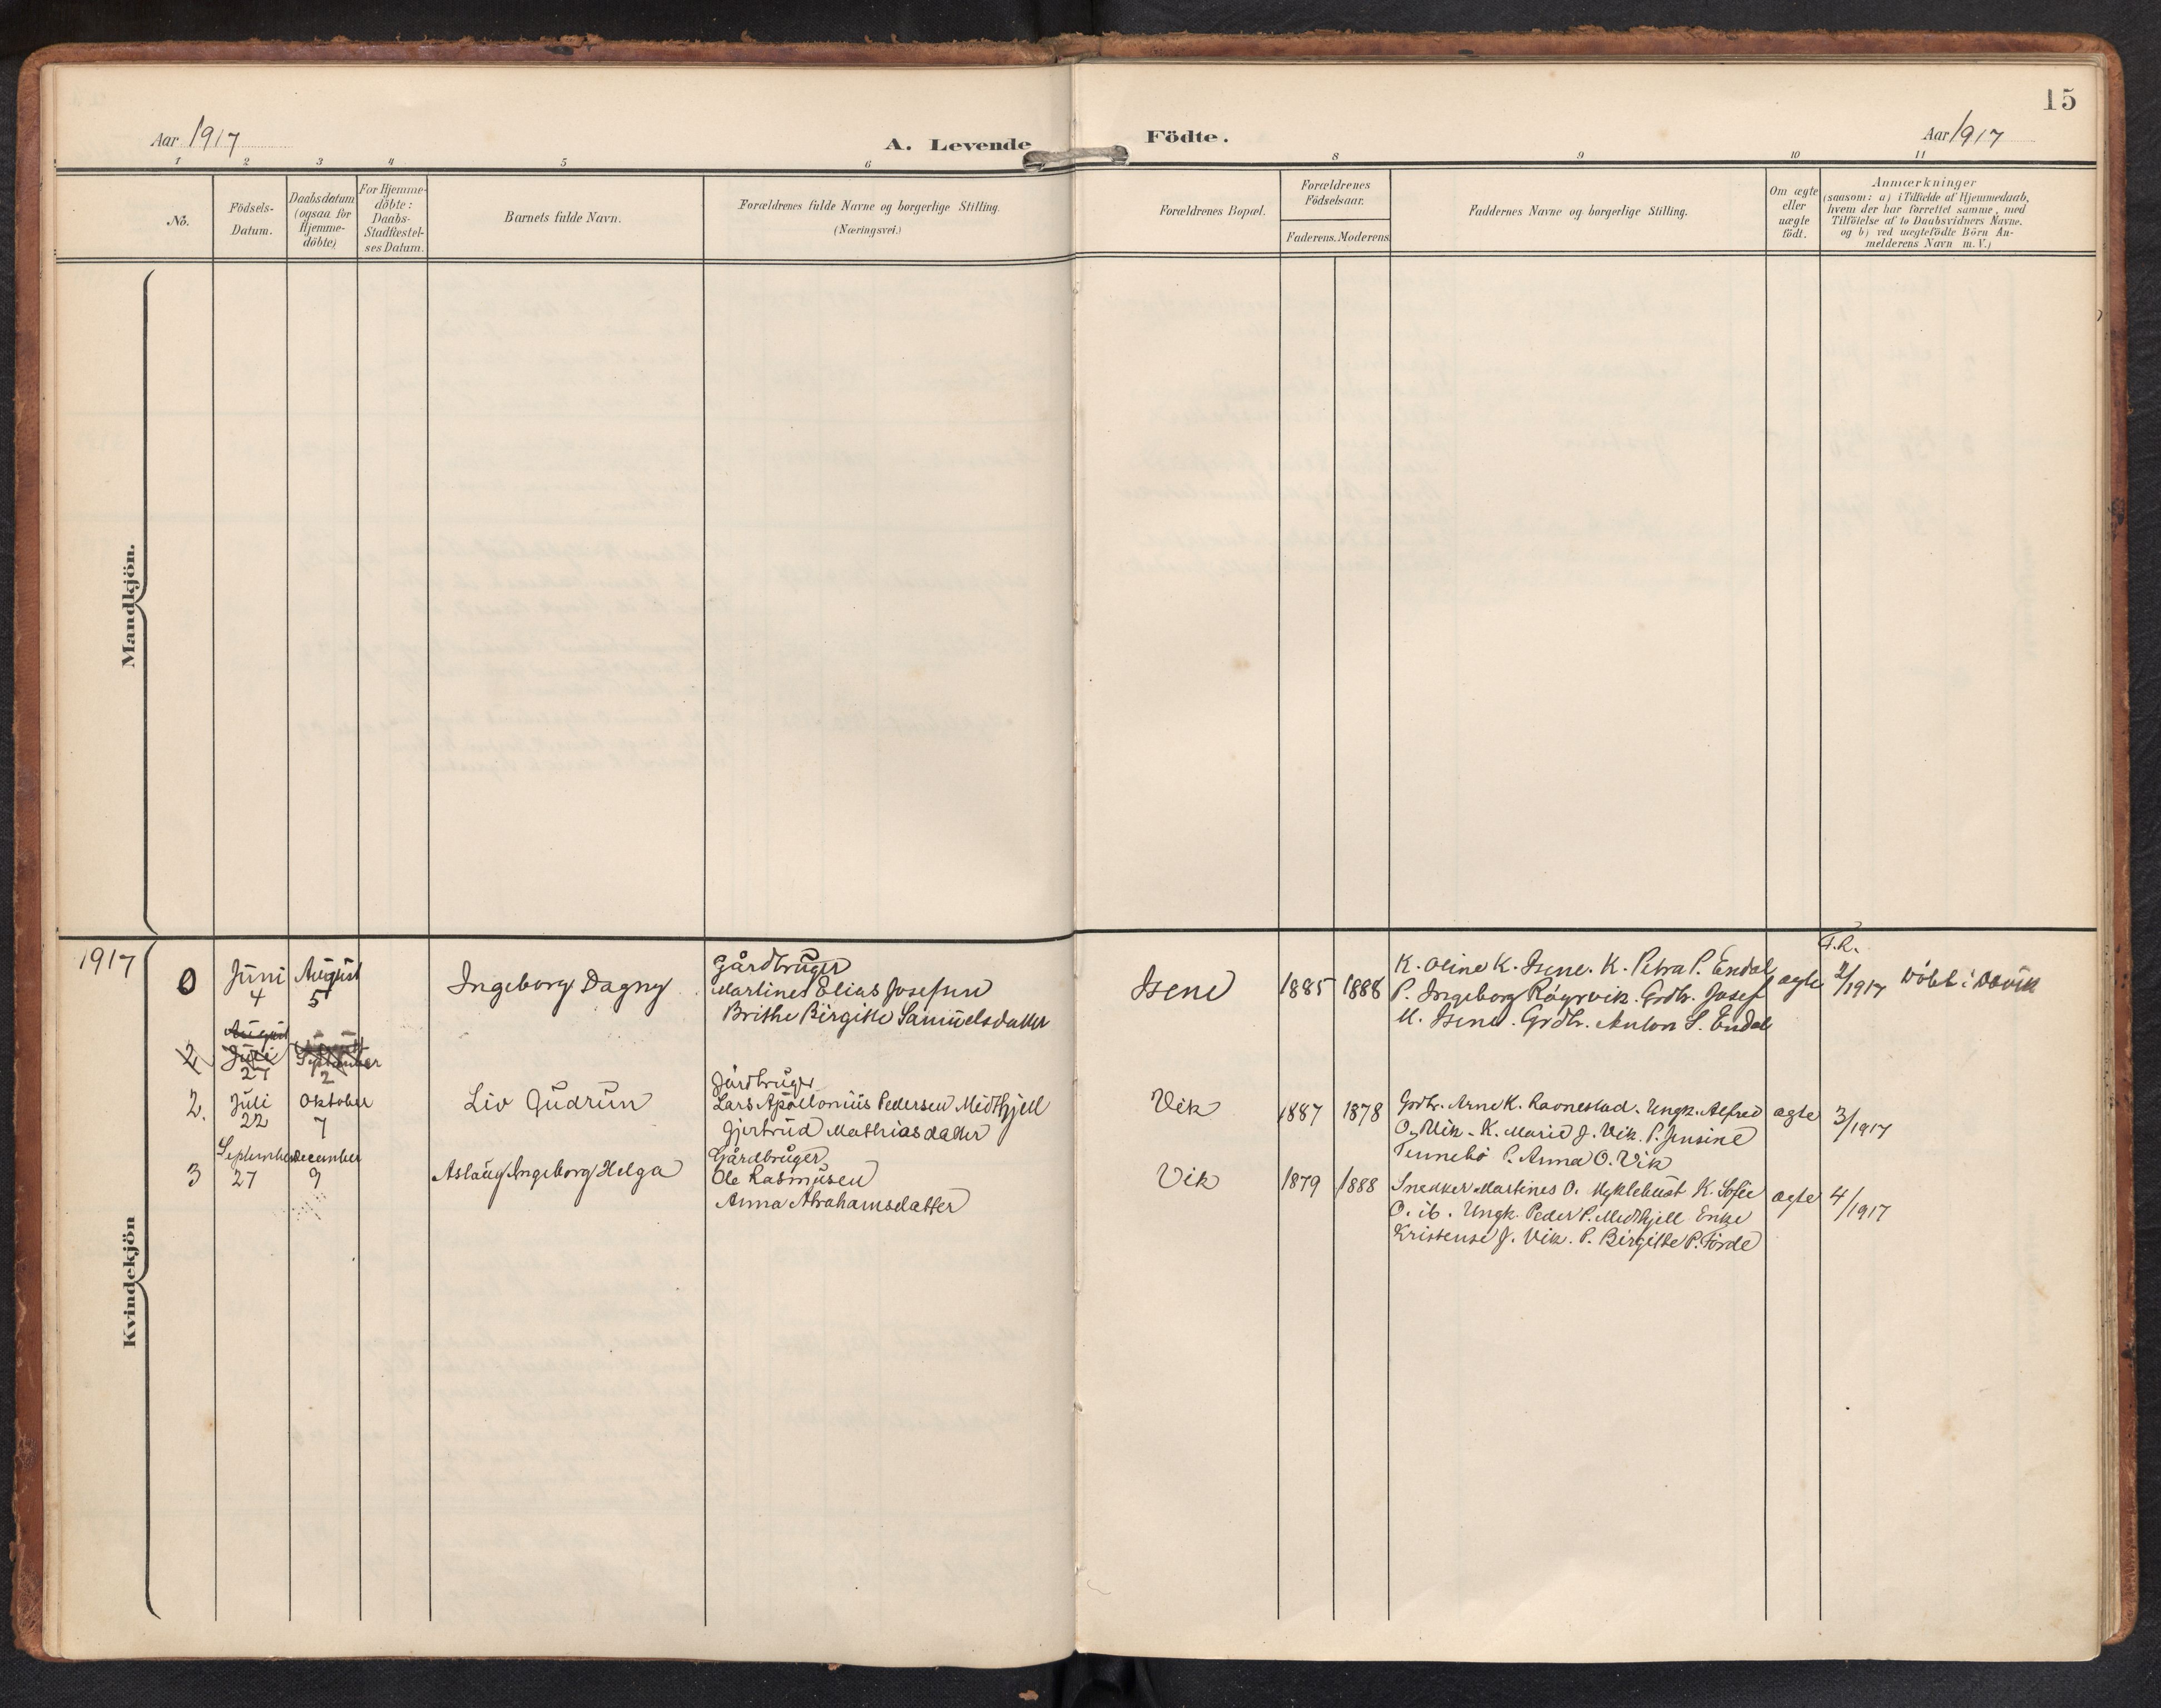 15
Aar 1917
A. Levende
Födte.
Aar 1917
1 2 3 4 5 6 8 9 10 11
No.
Födsels-
Datum.
Daabsdatum
(ogsaa for
Hjemme-
döbte)
For Hjemme-
döbte:
Daabs-
Stadfæstel-
ses Datum.
Barnets fulde Navn.
Forældrenes fulde Navne og borgerlige Stilling.
(Næringsvei.)
Forældrenes Bopæl.
Forældrenes
Födselsaar.
Faderens. Moderens.
Faddernes Navne og borgerlige Stilling.
Om ægte
eller
uægte
födt.
Anmærkninger
(saasom: a) i Tilfælde af Hjemmedaab,
hvem der har forrettet samme, med
Tilföielse af to Daabsvidners Navne.
og b) ved uægtefödte Börn An-
melderens Navn m. V.)
Mandkjön.
Kvindekjön
1917
0
Juni
4
August
5
Ingeborg Dagny
Gårdbruger
Martines Elias Josefsen
Brithe Birgitte Samuelsdatter
Isene
1885 1888
K. Oline K. Isene. K. Petra P. Endal
P. Ingeborg Röyrvik. Grdbr. Josef
M. Isene. Grdbr. Anton S. Endal
ægte
F.R.
2/1917 Döbt i Davik
2
August
Juli
27
September
2
2.
Juli
22
Oktober
7
Liv Gudrun
Gårdbruger
Lars Apollonius Pedersen Midthjell
Gjertrud Mathiasdatter
Vik
1887 1878
Grdbr. Arne K. Ravnestad. Ungk. Alfred
O. Vik. K. Marie J. Vik. P. Jensine
Tennebö P. Anna O. Vik
ægte
3/1917
3
September
27
December
9
Aslaug Ingeborg Helga
Gårdbruger
Ole Rasmusen
Anna Abrahamsdatter
Vik
1879 1888
Snedker Martines O. Myklebust K. Sofie
O. ib. Ungk. Peder P. Midthjell Enke
Kristense J. Vik. P. Birgitte P. Förde
ægte
4/1917